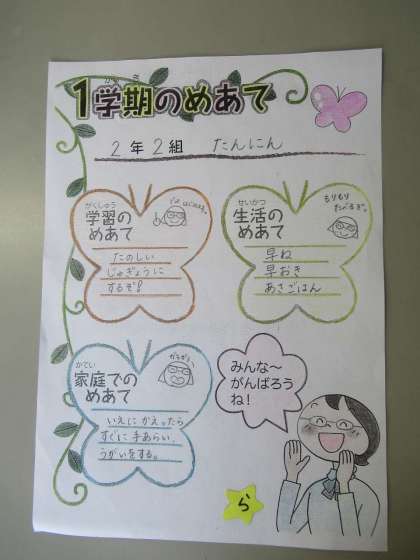 1学期のめあて
2年2組 たんにん
がくしゅう
学習の
めあて
たのしい
じゅぎょうに
するぞ!
せいかつ
生活の
めあて
もりもり
たべるぞ。
早ね
早おき
あさごはん
かてい
家庭での
めあて
ガラガラ
いえにかえったら
すぐに手あらい、
うがいをする。
みんな〜
がんばろう
ね!
ら